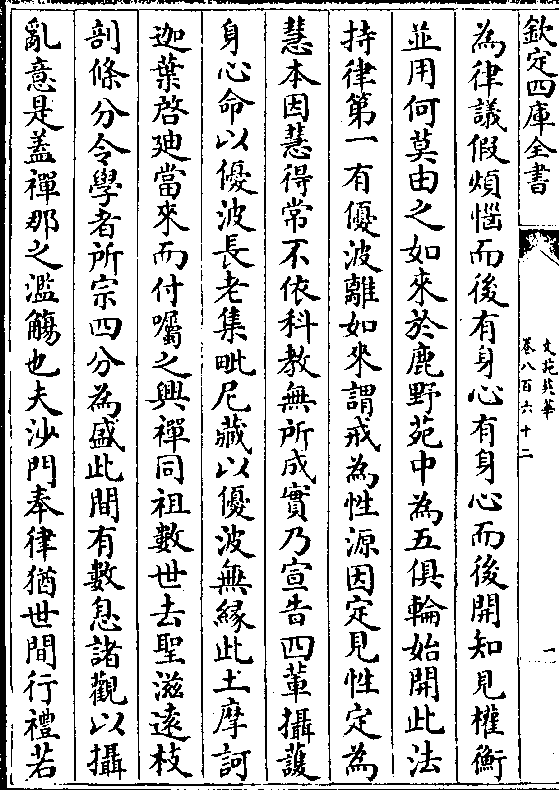 欽定四庫全書
文苑英華
卷八百六十二
一
為律議假煩惱而後有身心有身心而後開知見權衡
並用何莫由之如來於鹿野苑中為五俱輪始開此法
持律第一有優波離如來謂戒為性源因定見性定為
慧本因慧得常不依科教無所成實乃宣告四軰攝護
身心命以優波長老集毗尼藏以優波無緣此土摩訶
迦葉啓迪當來而付囑之與禪同祖數世去聖滋逺枝
剖條分令學者所宗四分為盛此間有數息諸觀以攝
亂意是蓋禪那之濫觴也夫沙門奉律猶世間行禮若